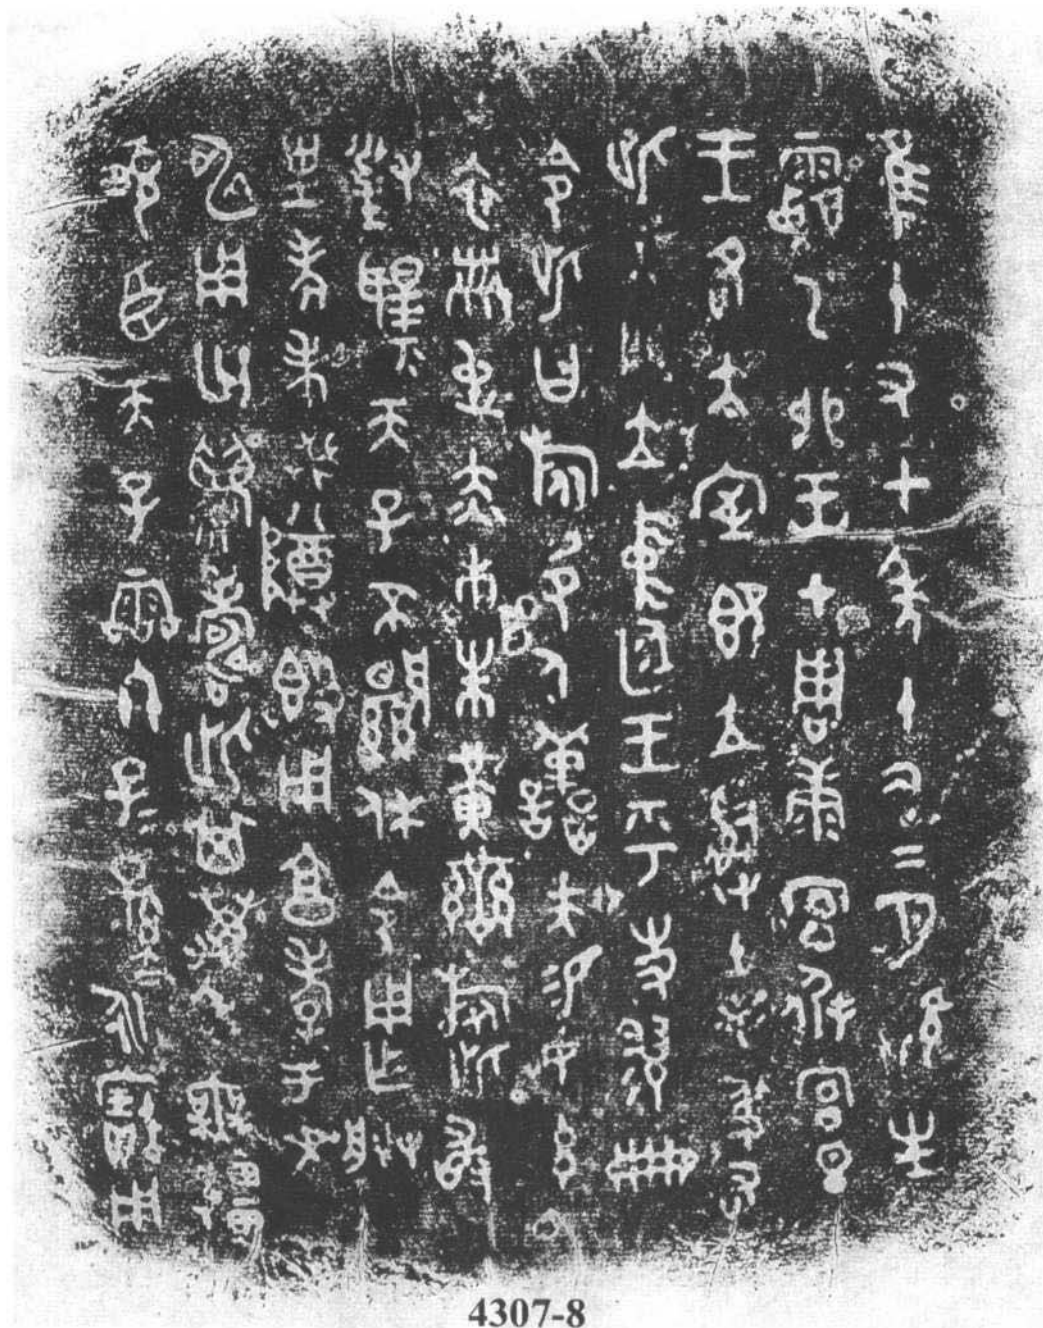 隹十又七年十又二月既生
霸乙卯王才周康宮𢓊宮旦
王各大室即立𤔲土毛弔右
此入門立中廷王乎史翏冊
令此曰旅邑人善夫易女玄
衣黹屯赤市朱黃䜌旂此敢
對揚天子不顯休令用乍朕
皇考癸公尊簋用享孝于文
申用匄眉壽此其萬年無彊
畯臣天子霝冬子子孫孫永寶用
4307-8